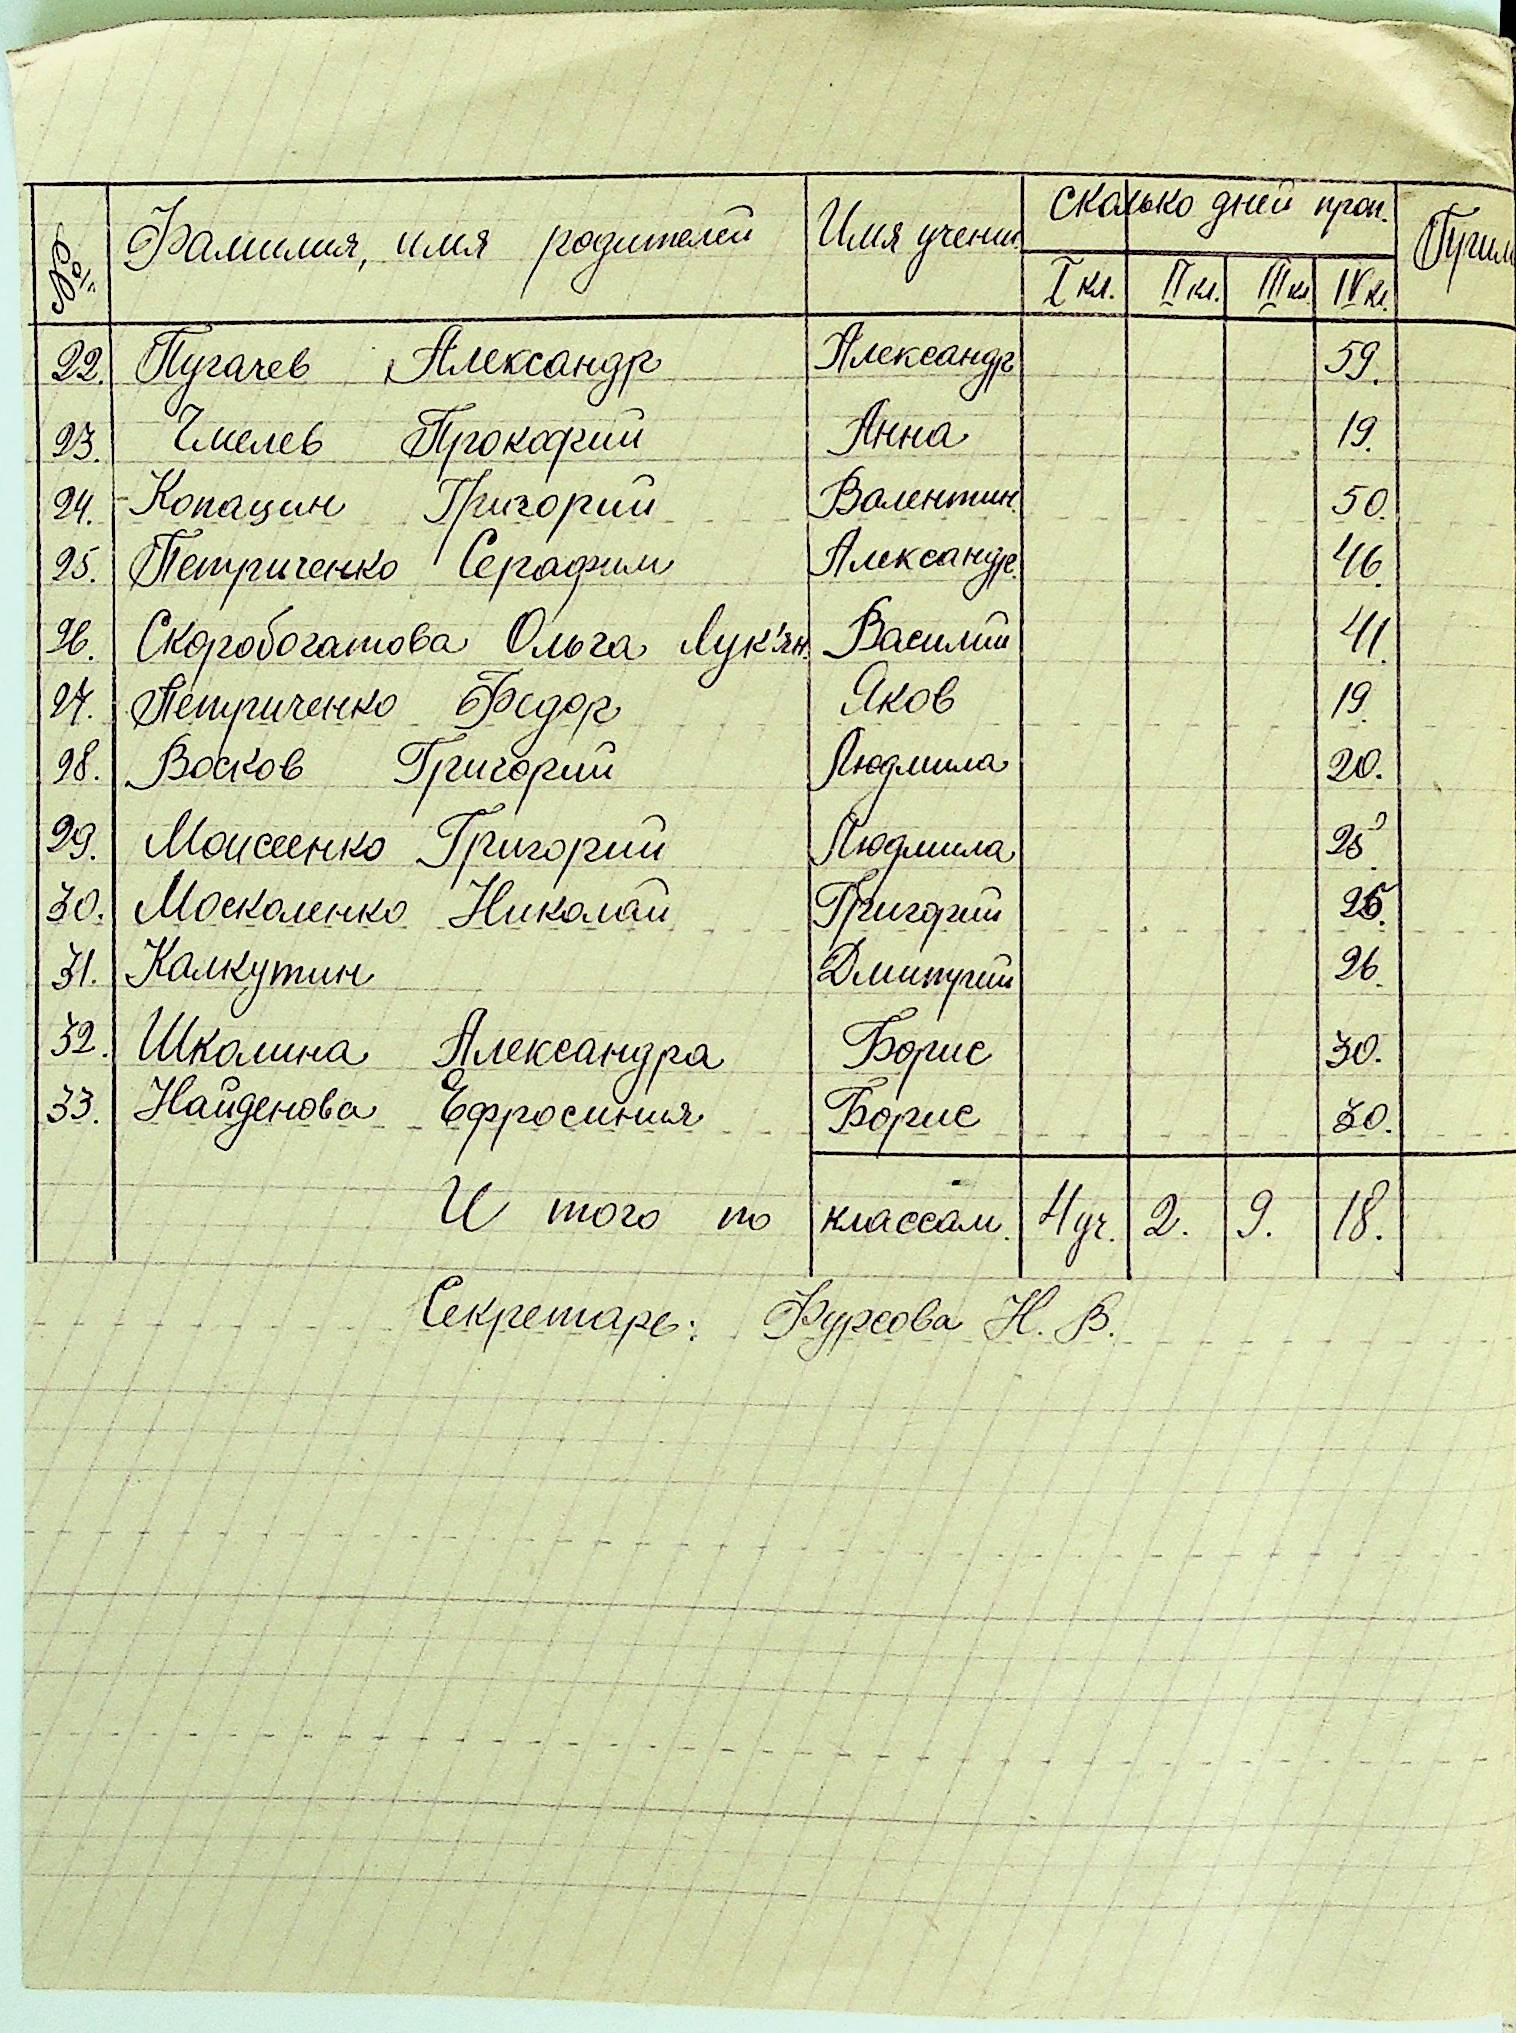 №№ Фамилия, имя родителей Имя учени. сколько дней проп.
I кл. II кл. III кл. IV кл.
22. Пугачев Александр Александр 59.
23. Чмелев Прокофий Анна 19.
24. Копацин Григорий Валентин. 50.
25. Петриченко Серафим Александр. 46.
26. Скоробогатова Ольга Лук'ян. Василий 41.
27. Петриченко Федор Яков 19.
28. Восков Григорий Людмила 20.
29. Моисеенко Григорий Людмила 25.
30. Москаленко Николай Григорий
31. Калкутин Дмитрий 26.
32. Школина Александра Борис 30.
33. Найденова Ефросиния Борис 30.
И того по классам. 4 уч. 2. 9. 18.
Секретарь: Фурсова Н. В.